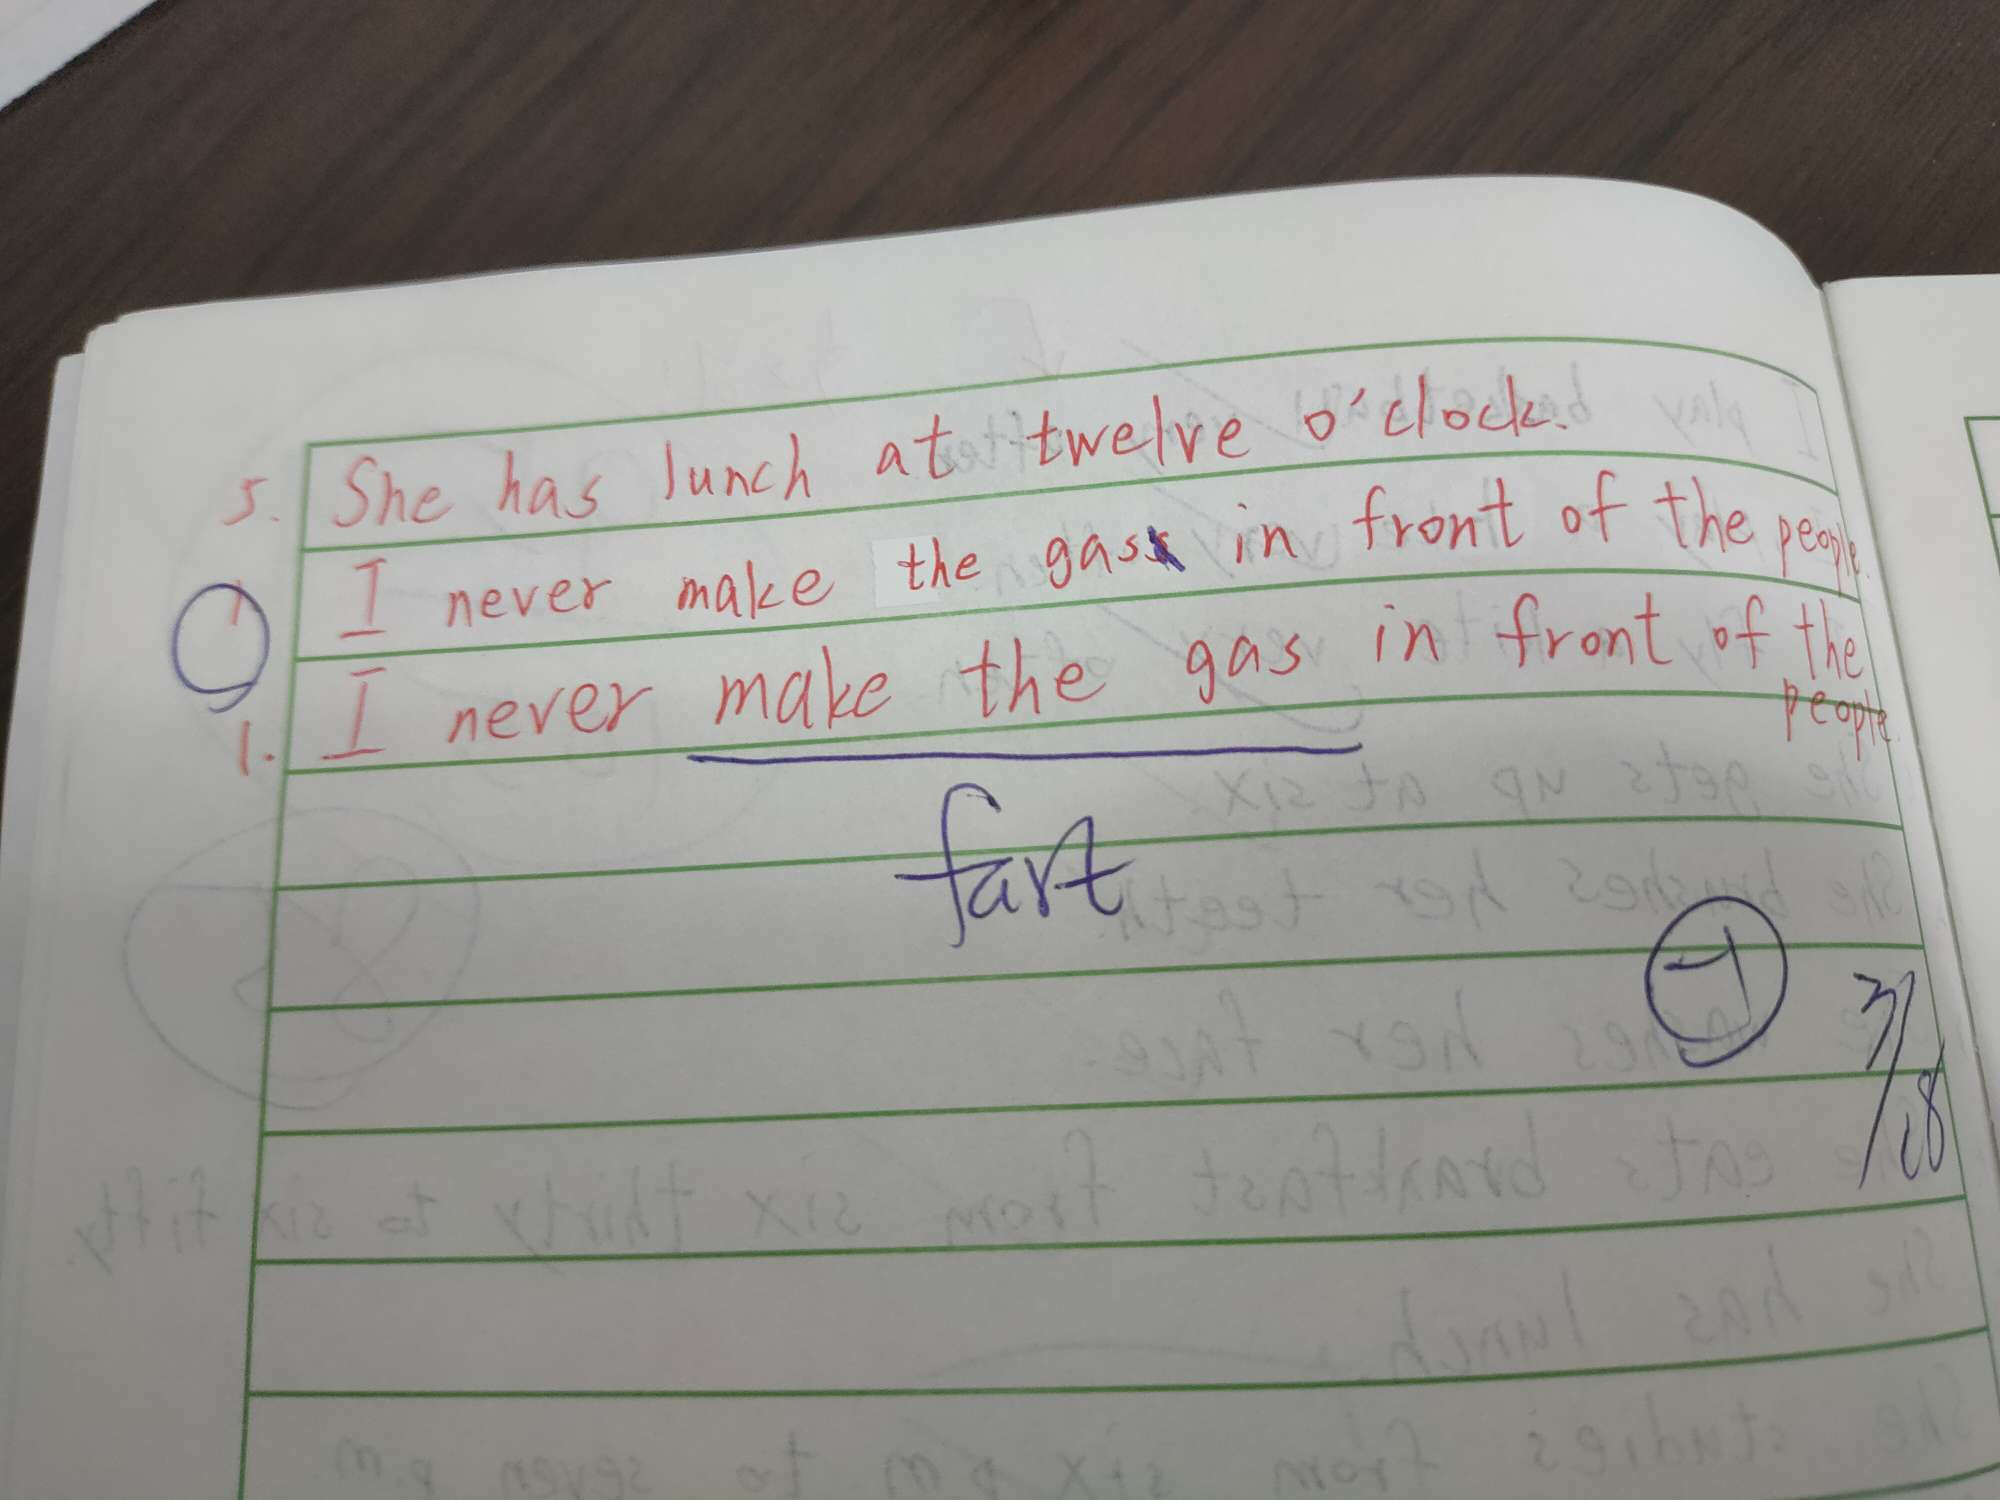 5. She has lunch at twelve o'clock.
1 I never make the gas in front of the people.
1. I never make the gas in front of the
people.
fart
-1
3/18